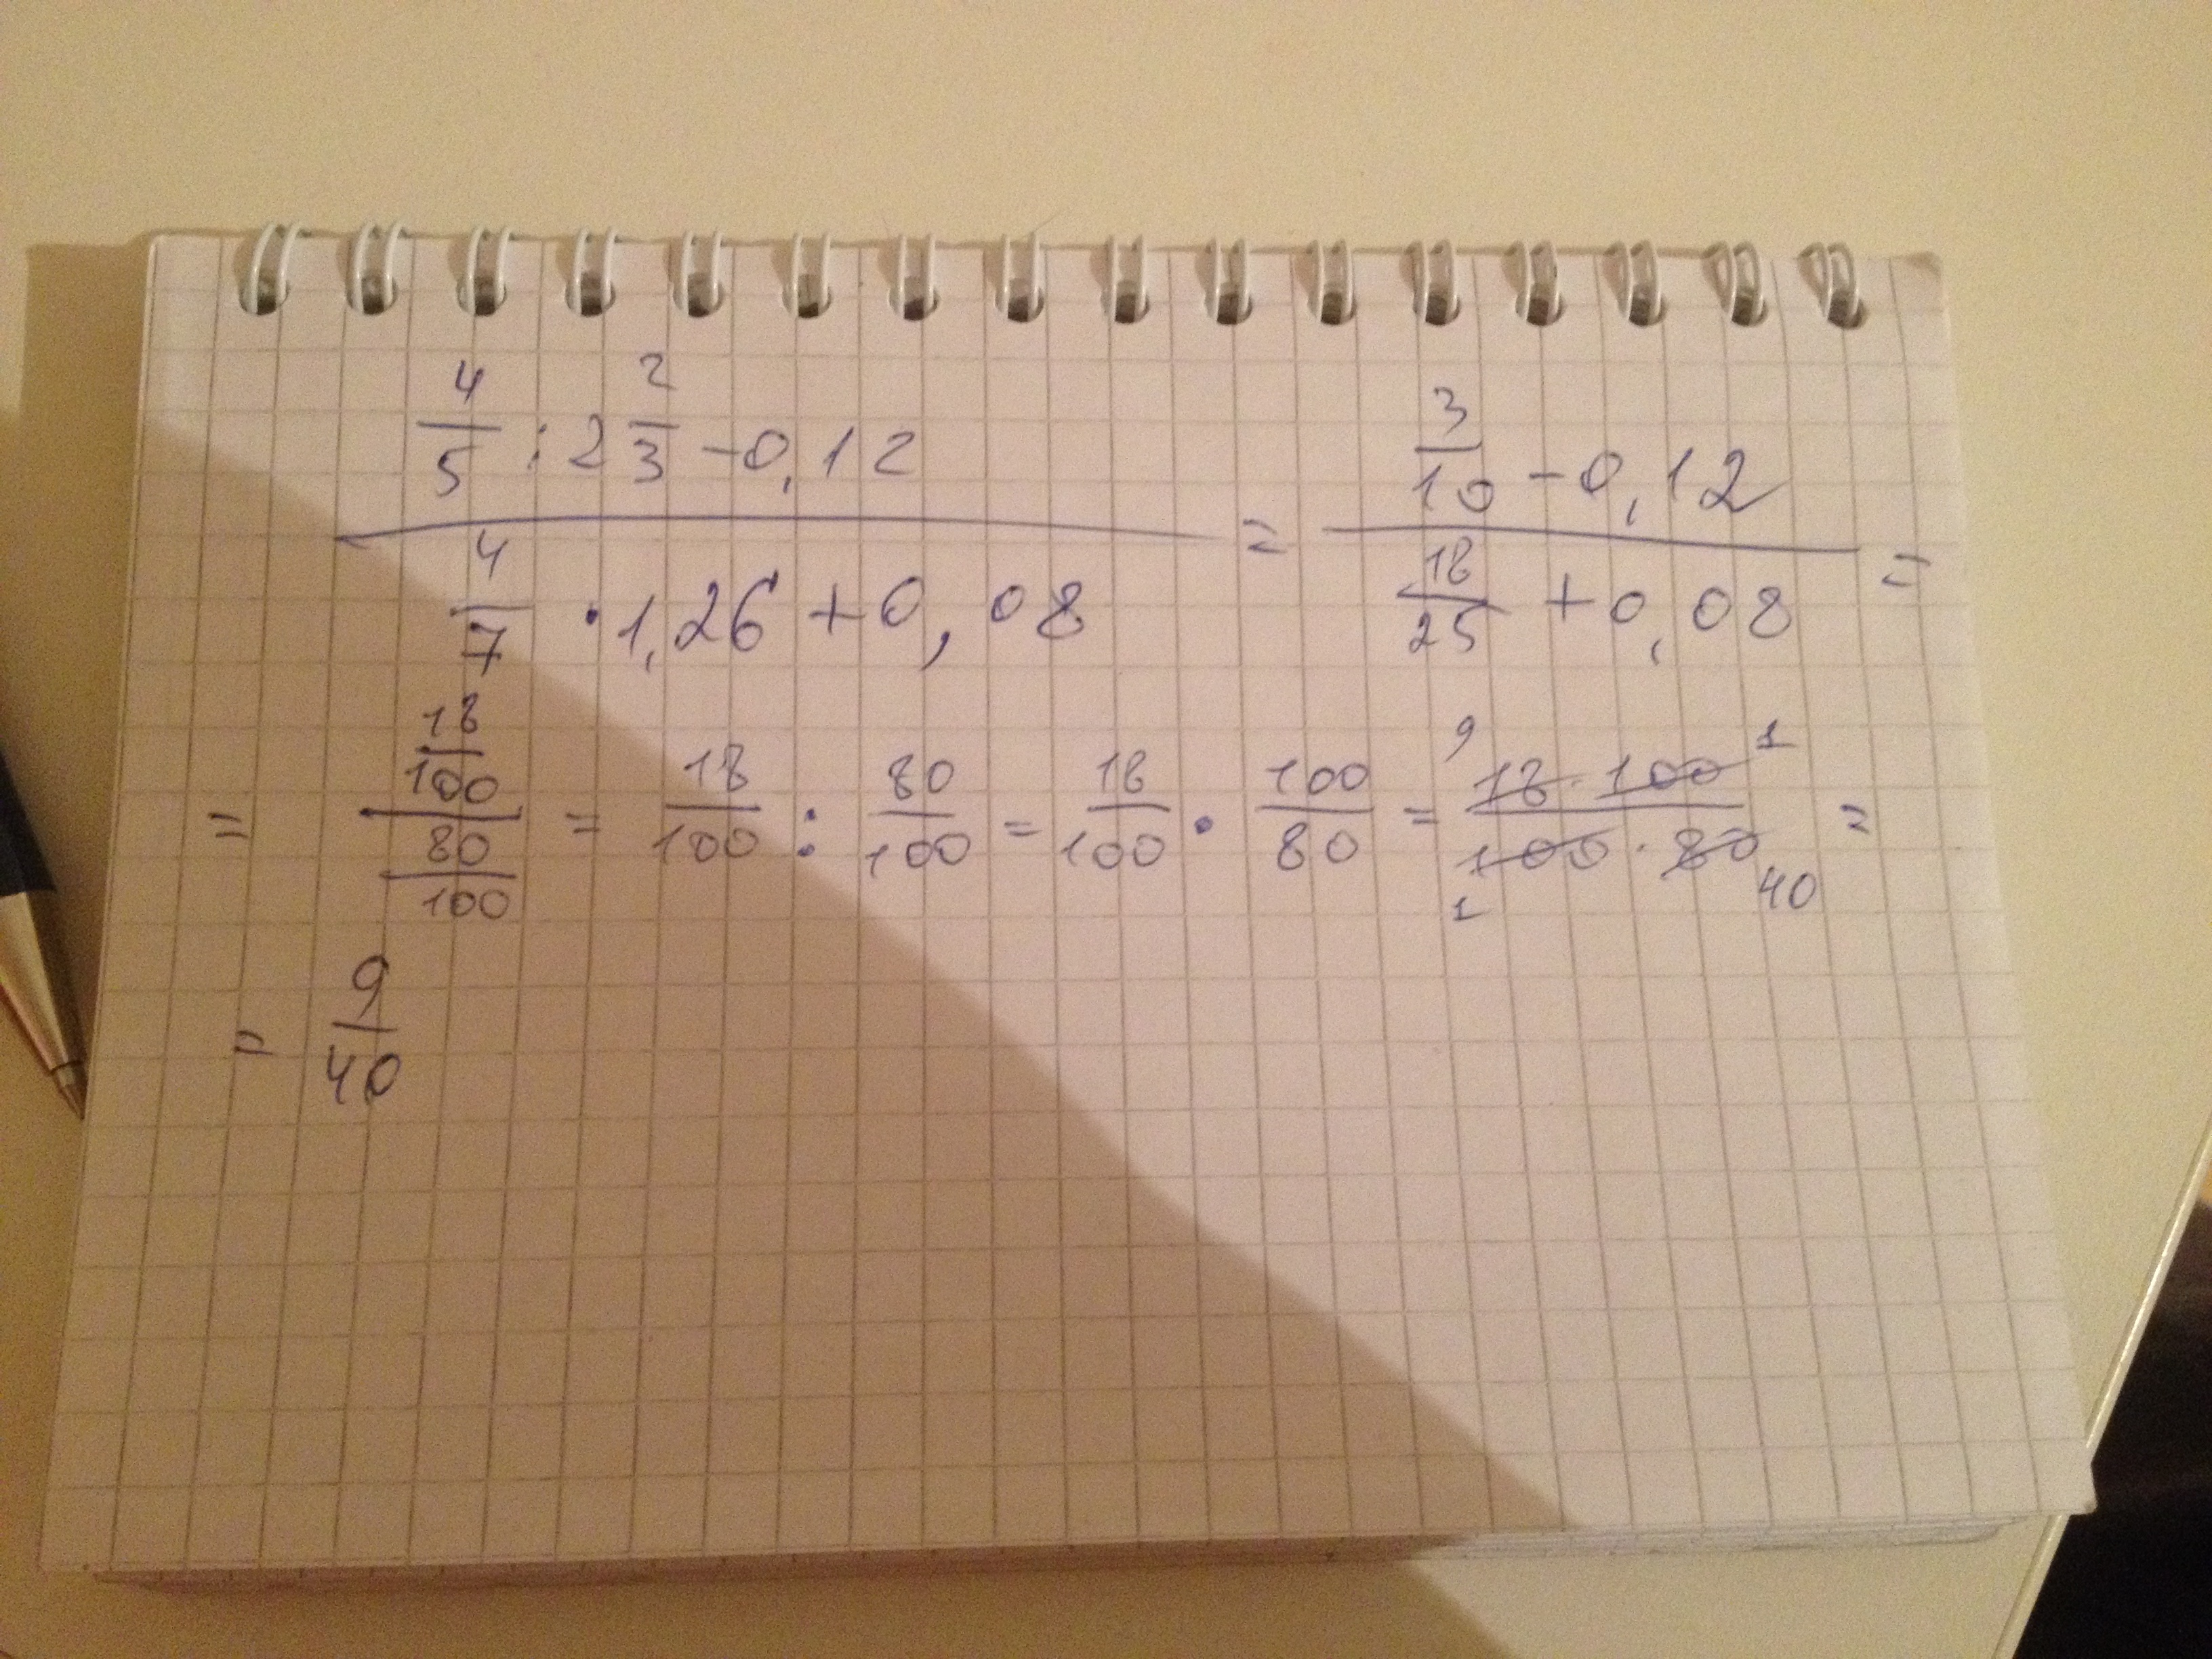 4/5 : 2 2/3 - 0,12 / 4/7 · 1,26 + 0,08 = 3/10 - 0,12 / 18/25 + 0,08 =
= 18/100 / 80/100 = 18/100 : 80/100 = 18/100 · 100/80 = 9 18 · 100 1 / 1 100 · 80 40 =
= 9/40